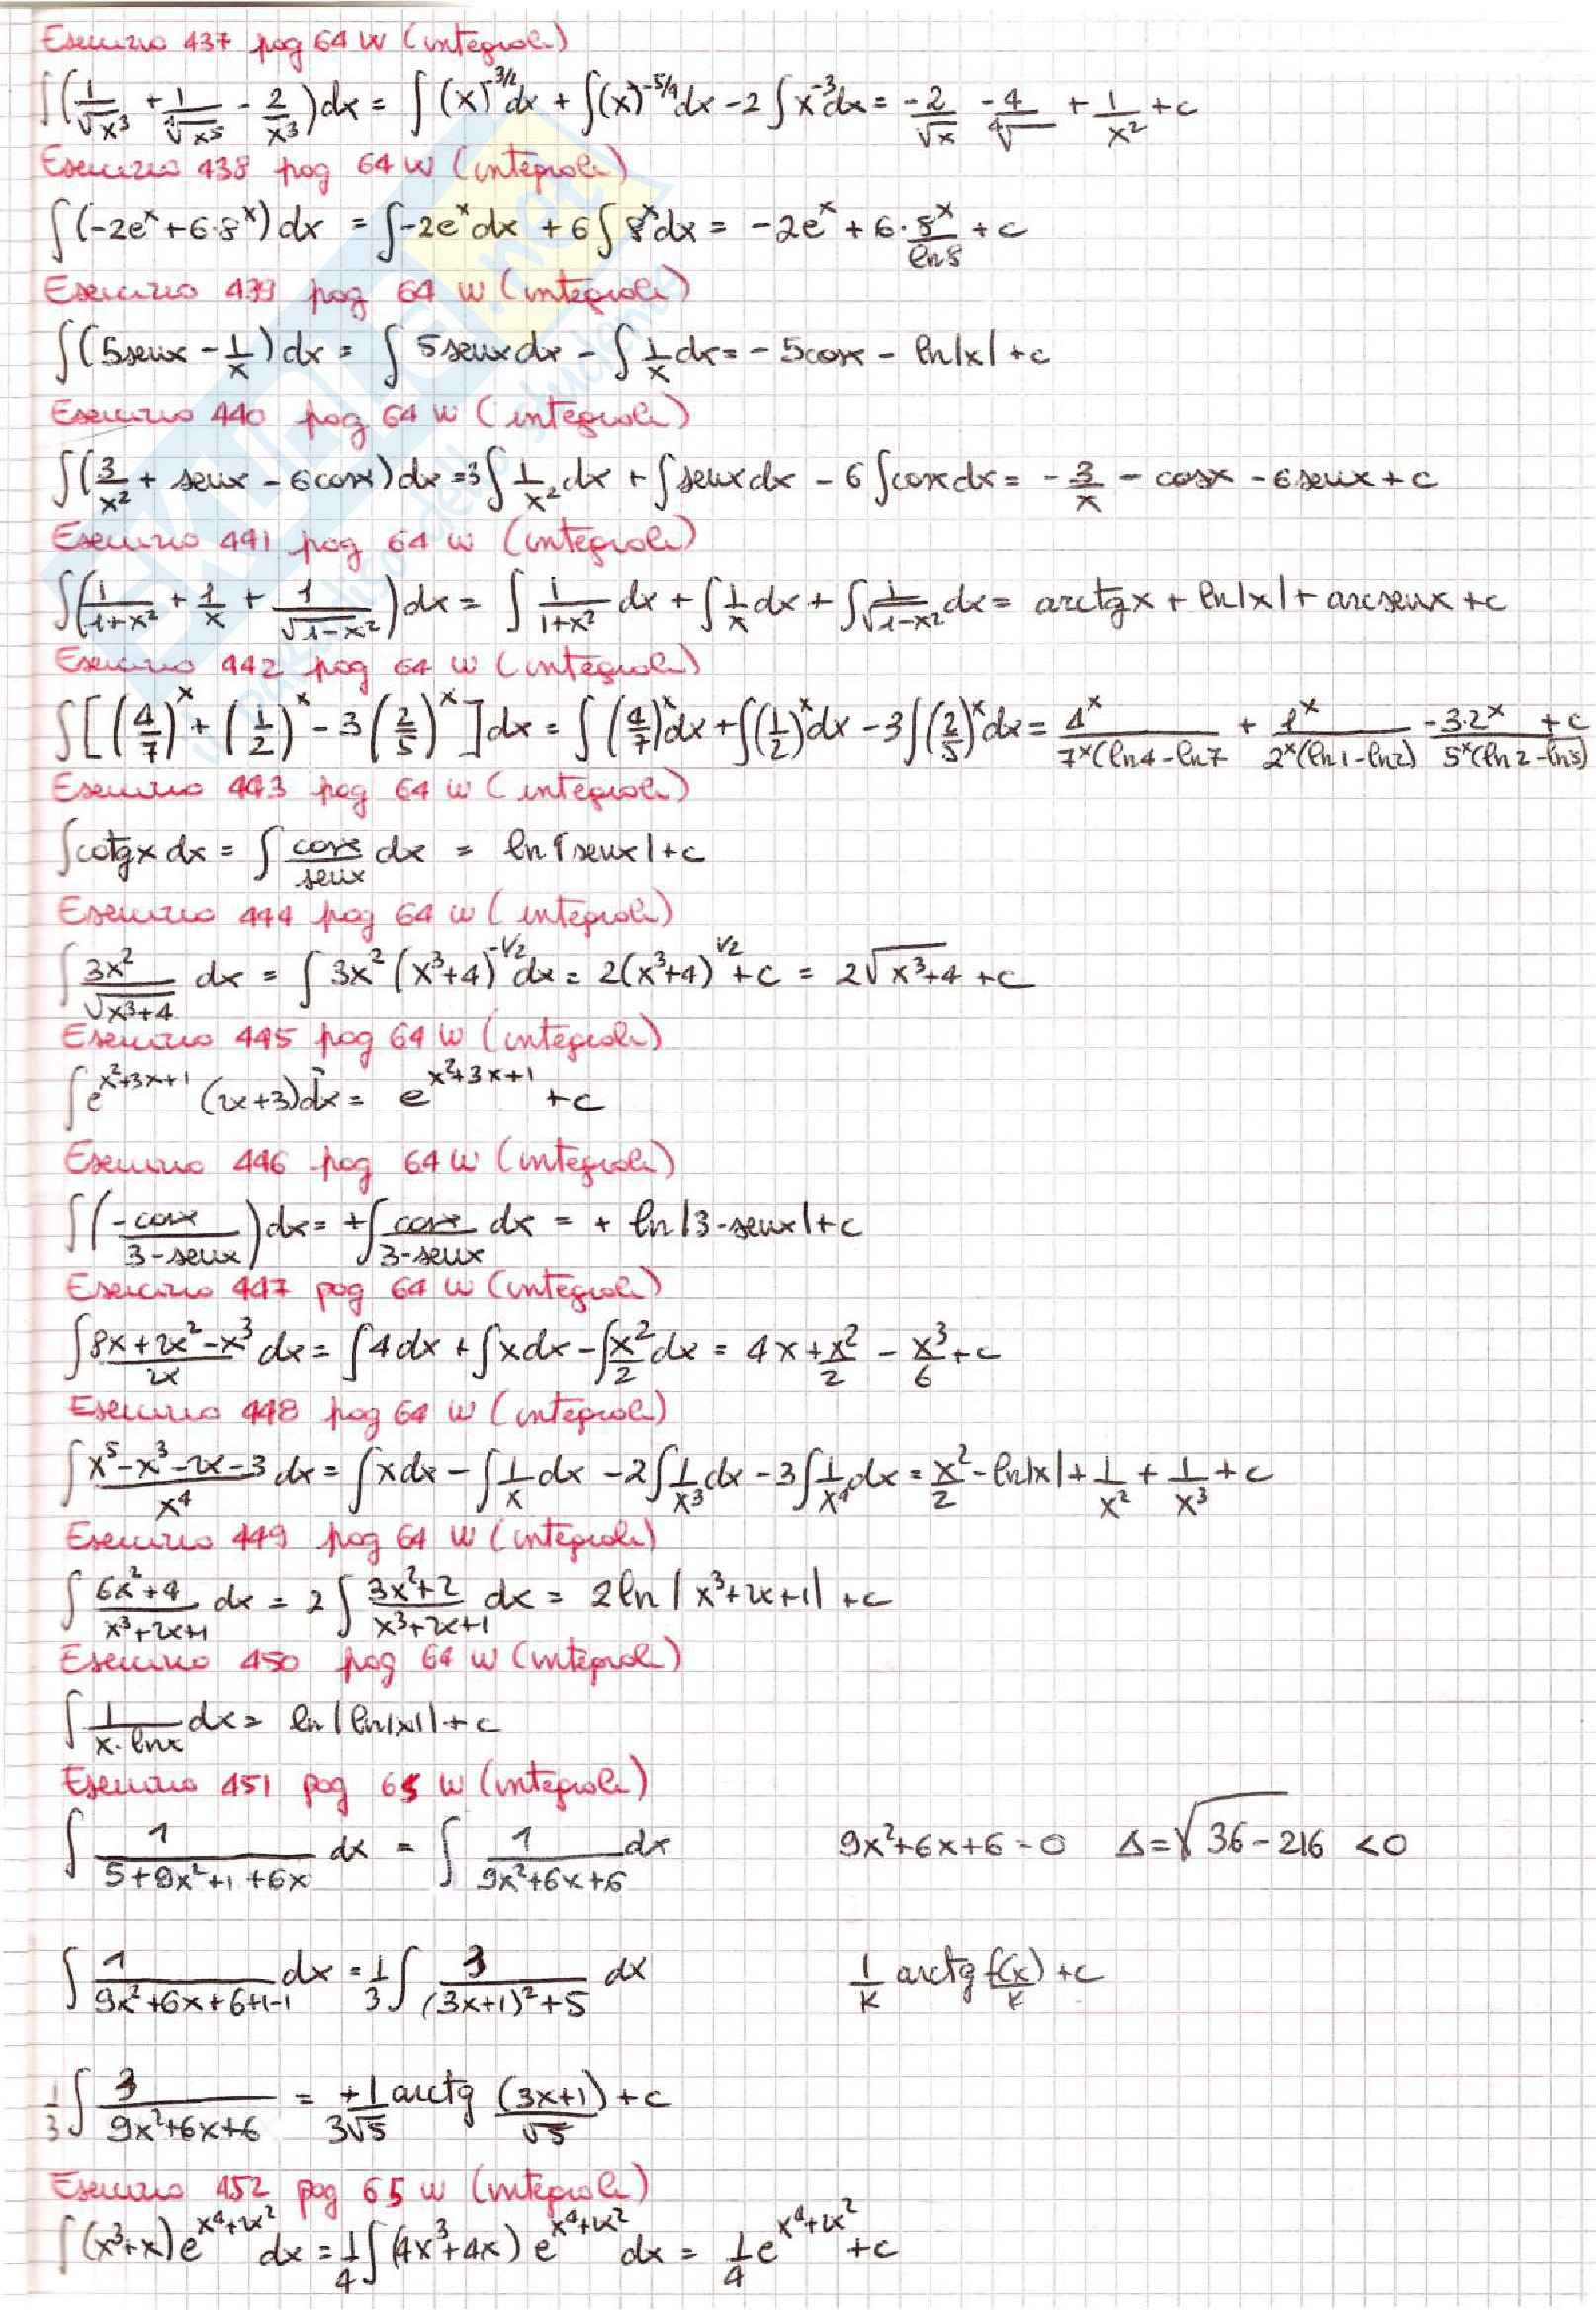 Esercizio 437 pag 64 W (integrali)
∫(1/√x³ + 1/⁴√x⁵ - 2/x³)dx = ∫(x)^-3/2 dx + ∫(x)^-5/4 dx - 2∫x^-3 dx = -2/√x - 4/⁴√ + 1/x² + c
Esercizio 438 pag 64 W (integrali)
∫(-2e^x + 6·8^x)dx = ∫-2e^x dx + 6∫8^x dx = -2e^x + 6·8^x/ln8 + c
Esercizio 439 pag 64 W (integrali)
∫(5senx - 1/x)dx = ∫5senxdx - ∫1/x dx = -5cosx - ln|x| + c
Esercizio 440 pag 64 W (integrali)
∫(3/x² + senx - 6cosx)dx = 3∫1/x² dx + ∫senxdx - 6∫cosxdx = -3/x - cosx - 6senx + c
Esercizio 441 pag 64 W (integrali)
∫(1/1+x² + 1/x + 1/√1-x²)dx = ∫1/1+x² dx + ∫1/x dx + ∫1/√1-x² dx = arctgx + ln|x| + arcsenx + c
Esercizio 442 pag 64 W (integrali)
∫[(4/7)^x + (1/2)^x - 3(2/5)^x]dx = ∫(4/7)^x dx + ∫(1/2)^x dx - 3∫(2/5)^x dx = 4^x/7^x(ln4-ln7 + 1^x/2^x(ln1-ln2) -3·2^x/5^x(ln2-ln5) + c
Esercizio 443 pag 64 W (integrali)
∫cotgx dx = ∫cosx/senx dx = ln|senx| + c
Esercizio 444 pag 64 W (integrali)
∫3x²/√x³+4 dx = ∫3x²(x³+4)^-1/2 dx = 2(x³+4)^1/2 + c = 2√x³+4 + c
Esercizio 445 pag 64 W (integrali)
∫e^x²+3x+1 (2x+3)dx = e^x²+3x+1 + c
Esercizio 446 pag 64 W (integrali)
∫(-cosx/3-senx)dx = +∫cosx/3-senx dx = + ln|3-senx| + c
Esercizio 447 pag 64 W (integrali)
∫8x+2x²-x³/2x dx = ∫4dx + ∫xdx - ∫x²/2 dx = 4x + x²/2 - x³/6 + c
Esercizio 448 pag 64 W (integrali)
∫x⁵-x³-2x-3/x⁴ dx = ∫xdx - ∫1/x dx - 2∫1/x³ dx - 3∫1/x⁴ dx = x²/2 - ln|x| + 1/x² + 1/x³ + c
Esercizio 449 pag 64 W (integrali)
∫6x²+4/x³+2x+1 dx = 2∫3x²+2/x³+2x+1 dx = 2ln|x³+2x+1| + c
Esercizio 450 pag 64 W (integrali)
∫1/x·lnx dx = ln|ln|x|| + c
Esercizio 451 pag 65 W (integrali)
∫1/5+9x²+1+6x dx = ∫1/9x²+6x+6 dx 9x²+6x+6=0 Δ=√36-216 <0
∫1/9x²+6x+6+1-1 dx = 1/3∫3/(3x+1)²+5 dx 1/k arctg f(x)/k + c
1/3∫3/9x²+6x+6 = +1/3√5 arctg (3x+1)/√5 + c
Esercizio 452 pag 65 W (integrali)
∫(x³+x)e^x⁴+2x² dx = 1/4∫(4x³+4x)e^x⁴+2x² dx = 1/4 e^x⁴+2x² + c